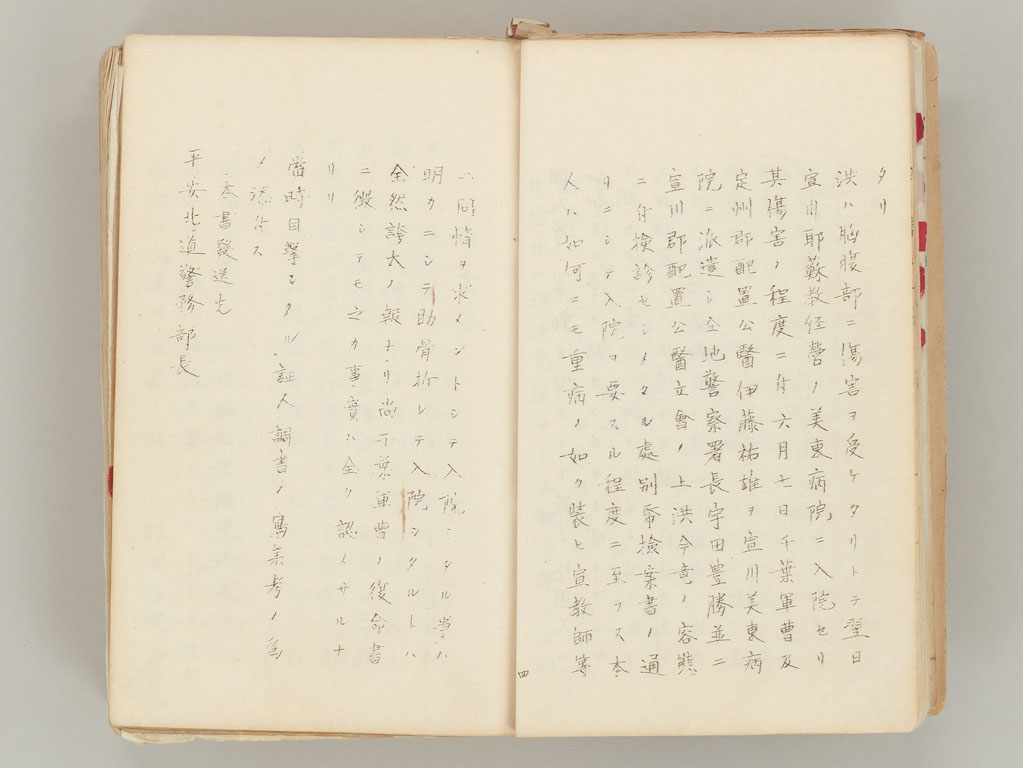 タリ
洪ハ胸腹部ニ傷害ヲ受ケタリトテ翌日
宣川耶蘇教経営ノ美東病院ニ入院セリ
其傷害ノ程度ニ付六月七日千葉軍曹及
定州郡配置公醫伊藤祐雄ヲ宣川美東病
院ニ派遣シ仝地警察署長宇田豊勝並ニ
宣川郡配置公醫立會ノ上洪今竜ノ容態
ニ付検診セシメタル處別帋検案書ノ通
リニシテ入院ヲ要スル程度ニ至ラス本
人ハ如何ニモ重病ノ如ク装ヒ宣教師等
四
ニ同情ヲ求メントシテ入院シタル事ハ
明カニシテ助骨折レテ入院シタルトハ
全然誇大ノ報ナリ尚千葉軍曹ノ復命書
ニ徴シテモ之カ事實ハ全ク認メサルナ
リ
當時目撃シタル証人調書ノ寫末考ノ為
メ添付ス
本書發送先
平安北道警務部長